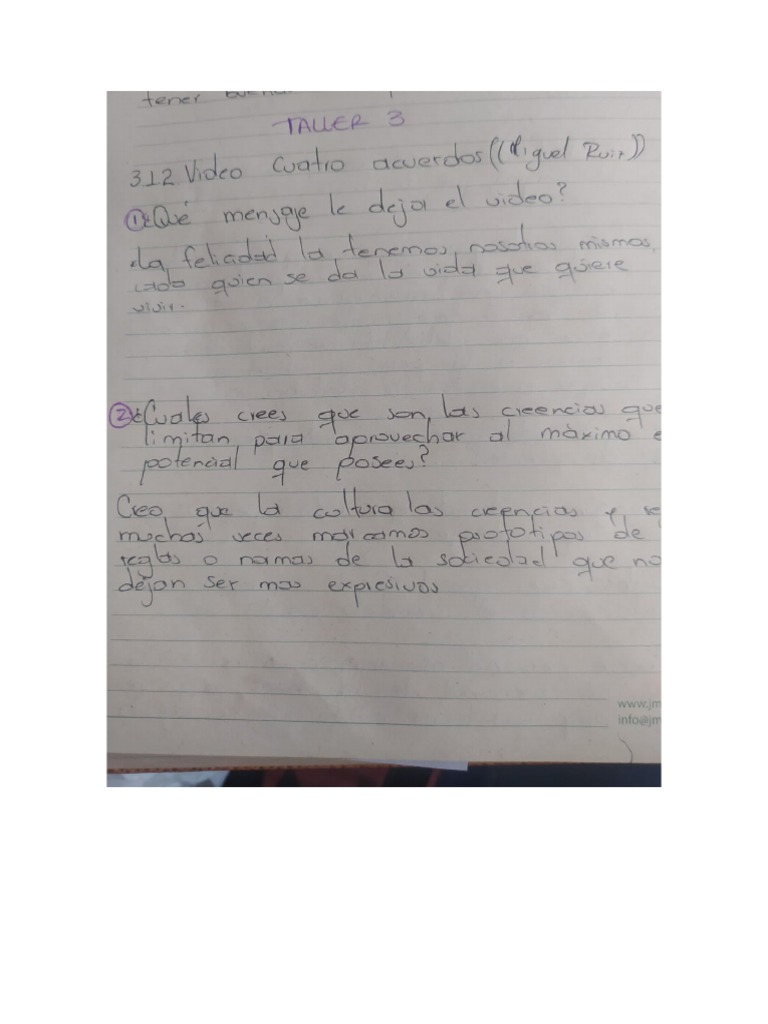 tener
TALLER 3
3.1.2 Video Cuatro acuerdos ((Miguel Ruiz))
① ¿Qué mensaje le deja el video?
La felicidad la tenemos nosotros mismos,
cada quien se da la vida que quiere
vivir.
② ¿Cuales crees que son las creencias que
limitan para aprovechar al máximo e
potencial que posees?
Creo que la cultura las creencias y
muchas veces marcamos prototipos de
reglas o normas de la sociedad que no
dejan ser mas expresivos
www.jm
info@jm